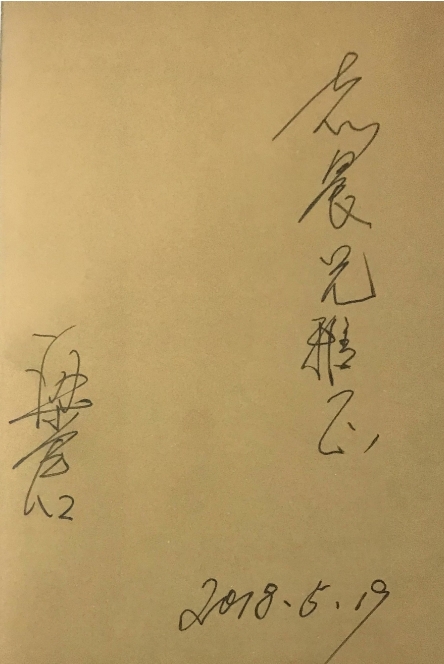 志晨兄雅正
2018.5.19